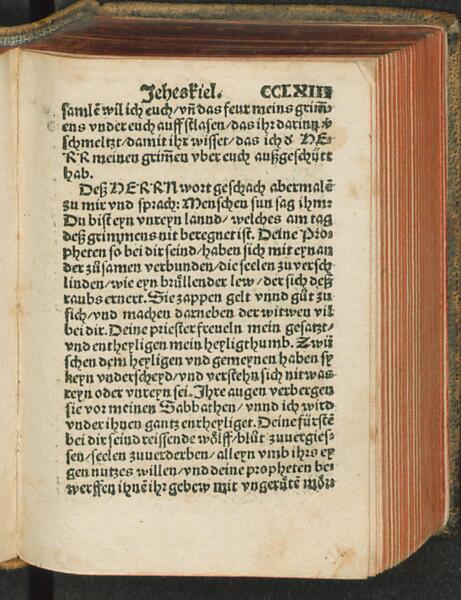 Jeheskiel. CCLXIII
samlē wil ich euch/vñ das feur meins grim̄
ens vnder euch auff stlasen/das ihr darinn
schmeltzt/damit ihr wisset/das ich d' HE-
RR meinen grim̄en vber euch außgeschütt
hab.
Deß HERRN wort geschach abermalē
zu mir vnd sprach: Menschen sun sag ihm:
Du bist eyn vnreyn lannd/ welches am tag
deß grimmens nit beregnet ist. Deine Pro-
pheten so bei dir seind/haben sich mit eynan
der zůsamen verbunden/die seelen zu versch
linden/wie eyn brüllender lew/der sich deß
raubs ernert. Sie zappen gelt vnnd gůt zu
sich/vnd machen darneben der witwen vil
bei dir. Deine priester freueln mein gesatzt/
vnd entheyligen mein heyligthumb. Zwü
schen dem heyligen vnd gemeynen haben sy
keyn vnderscheyd/vnd verstehn sich nit was
reyn oder vnreyn sei. Ihre augen verbergen
sie vor meinen Sabbathen/vnnd ich wird
vnder ihnen gantz entheyliget. Deine fürstē
bei dir seind reissende wölff/blůt zuuergies-
sen/seelen zuuerderben/alleyn vmb ihrs ey
gen nutzes willen/vnd deine propheten be-
werffen ihnē ihr gebew mit vngerütē mör-